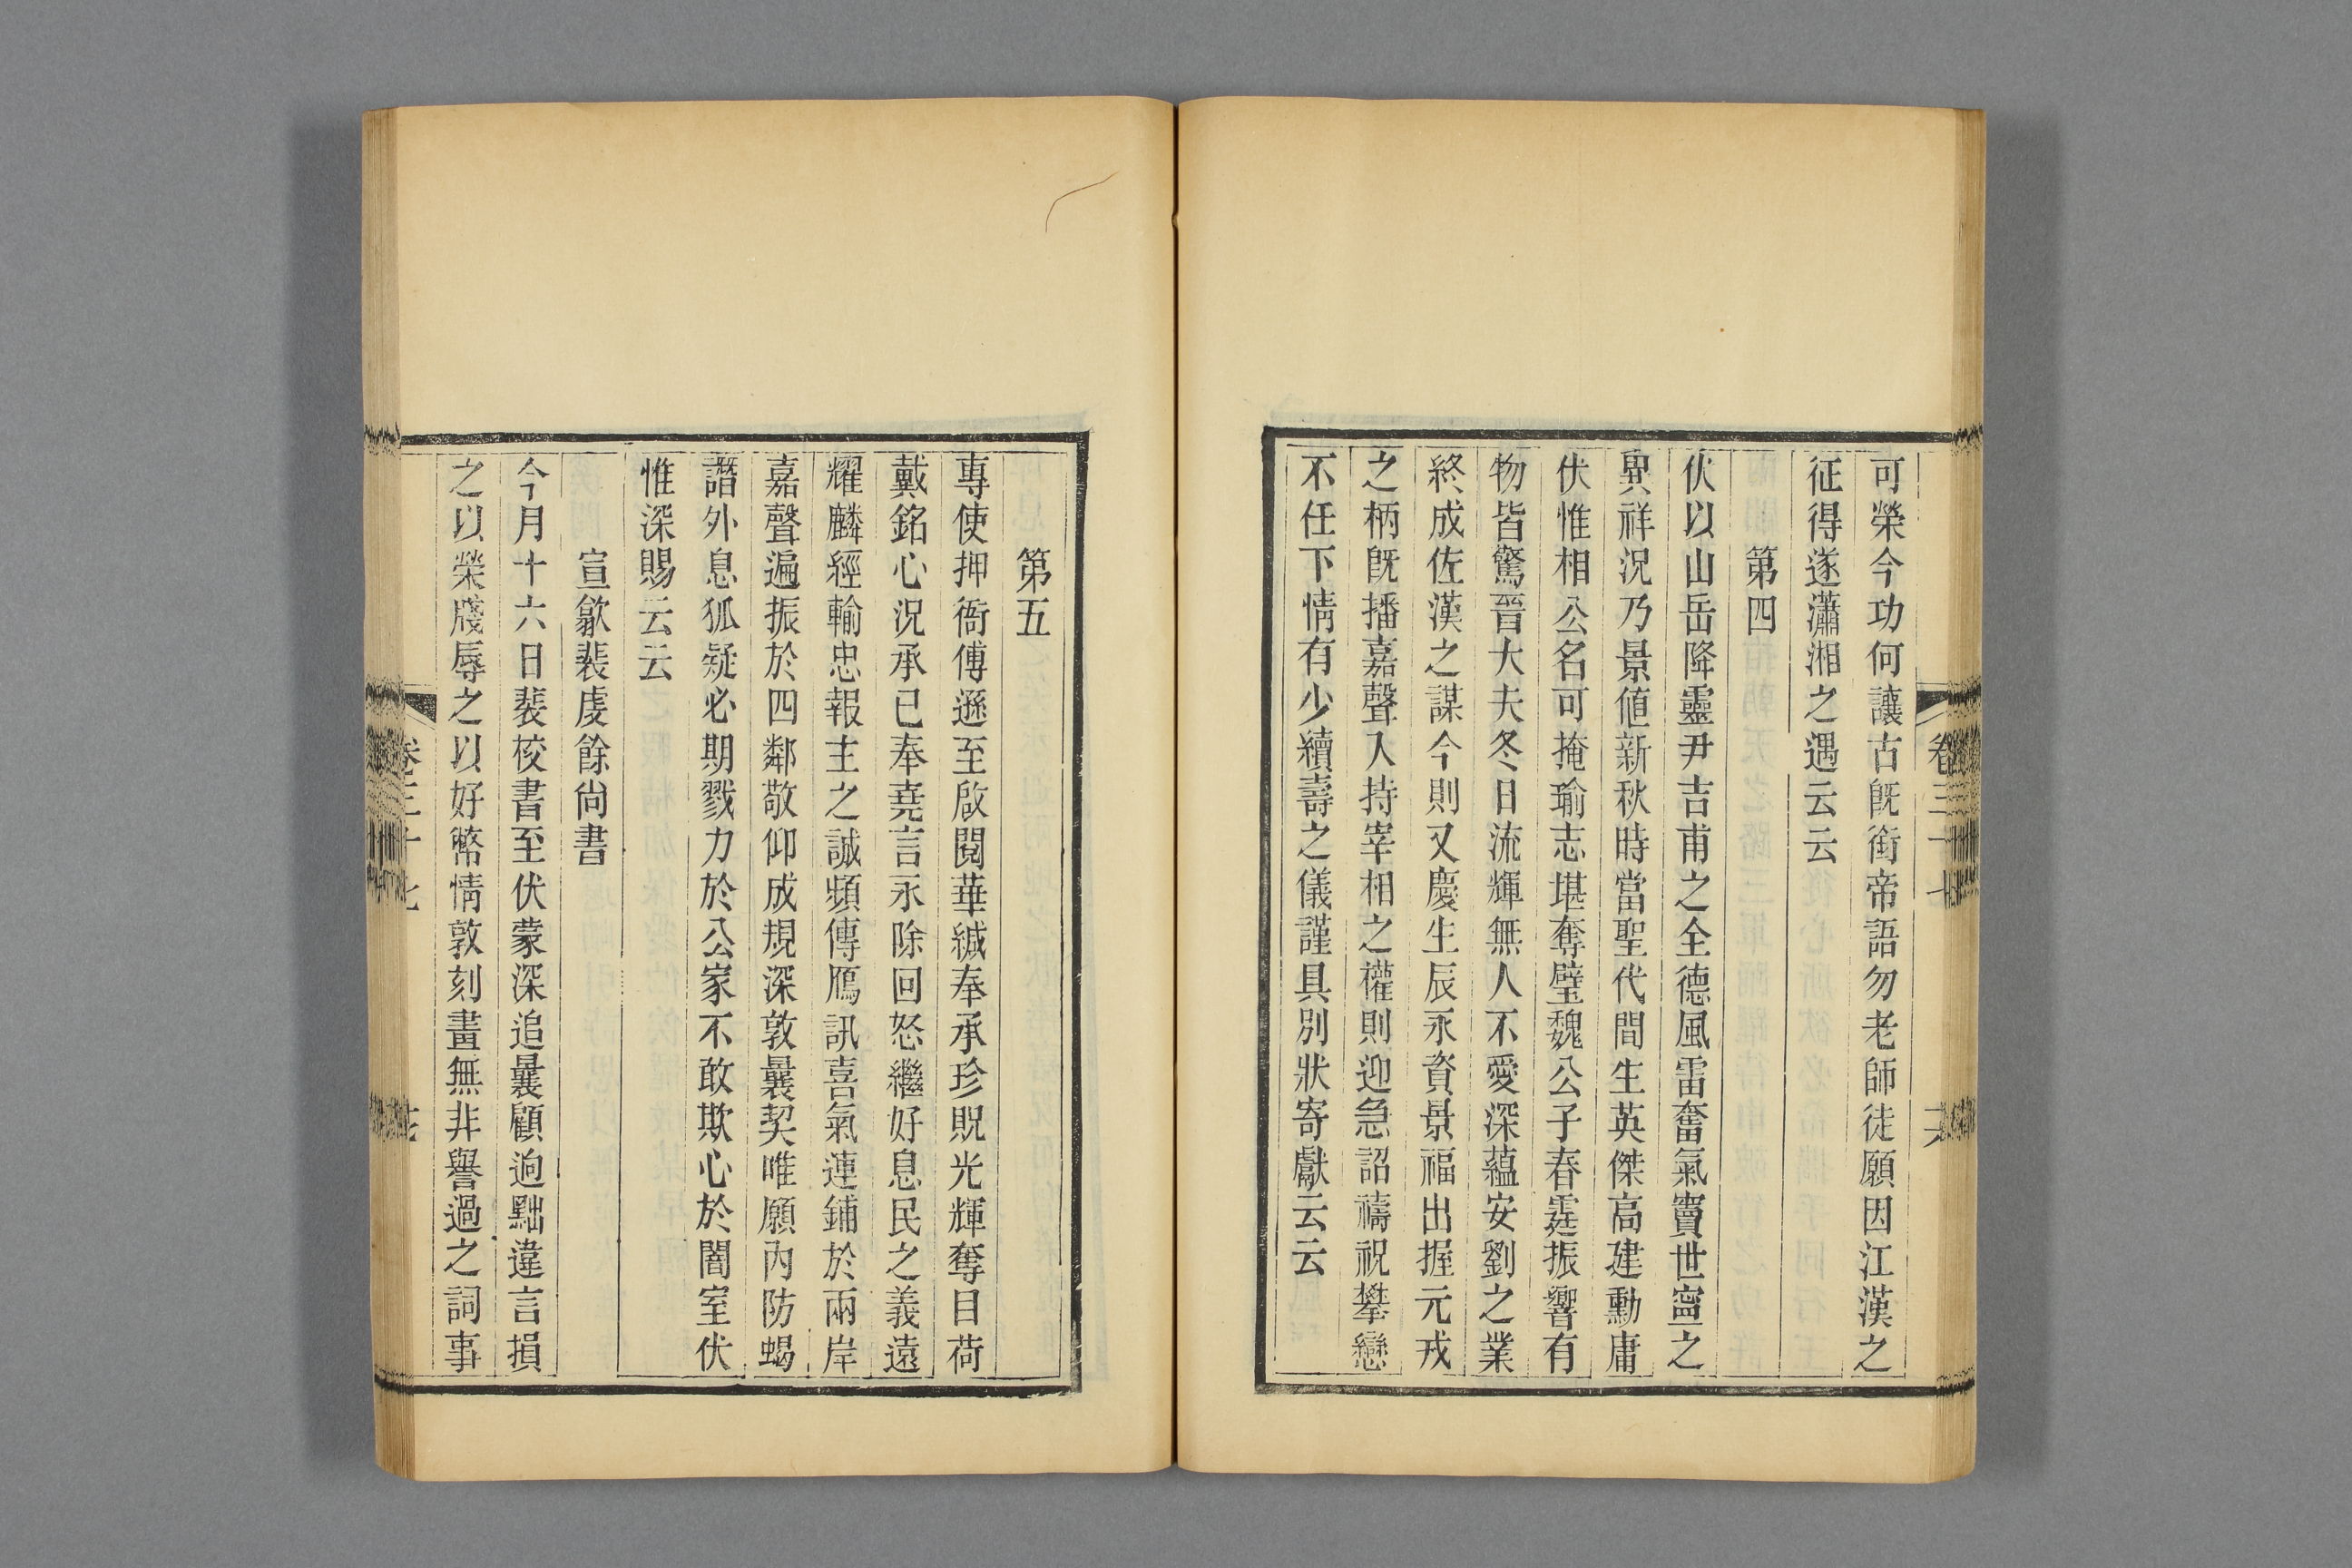 可榮今功何讓古旣銜帝語勿老師徒願因江漢之
征得遂瀟湘之遇云云
第四
伏以山岳降靈尹吉甫之全德風雷奮氣竇世寍之
異祥況乃景値新秋時當聖代間生英傑高建勳庸
伏惟相公名可掩瑜志堪奪璧魏公子春霆振響有
物皆驚晉大夫冬日流輝無人不愛深蘊安劉之業
終成佐漢之謀今則又慶生辰永資景福出握元戎
之柄旣播嘉聲入持宰相之權則迎急詔禱祝攀戀
不任下情有少續壽之儀謹具別狀寄獻云云
卷三十七
第五
專使押衙傅遜至啟閱華緘奉承珍貺光輝奪目荷
戴銘心況承已奉堯言永除回怒繼好息民之義遠
耀麟經輸忠報主之誠頻傳鴈訊喜氣連鋪於兩岸
嘉聲遍振於四鄰敬仰成規深敦曩契唯願內防蝎
譖外息狐疑必期戮力於公家不敢欺心於闇室伏
惟深賜云云
宣歙裴虔餘尙書
今月十六日裴校書至伏蒙深追曩顧逈黜違言損
之以榮牋辱之以好幣情敦刻畫無非譽過之詞事
卷三十七